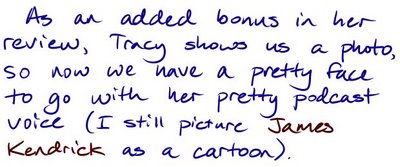 As an added bonus in her
review, Tracy shows us a photo,
so now we have a pretty face
to go with her pretty podcast
voice (I still picture James
Kendrick as a cartoon).